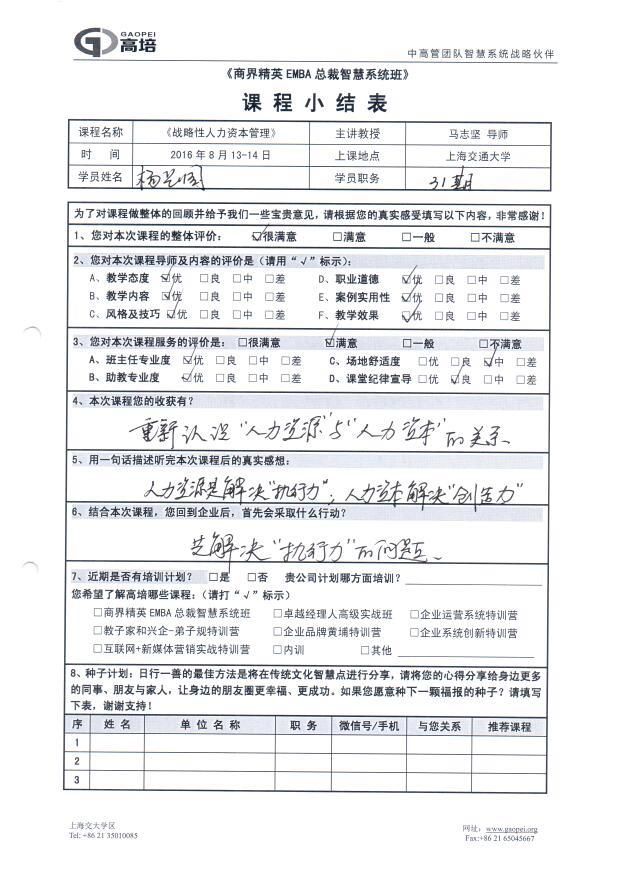 GAOPEI
高培
中高管团队智慧系统战略伙伴
《商界精英 EMBA 总裁智慧系统班》
课程小结表
课程名称 《战略性人力资本管理》 主讲教授 马志坚 导师
时 间 2016 年 8 月 13-14 日 上课地点 上海交通大学
学员姓名 学员职务 31期
为了对课程做整体的回顾并给予我们一些宝贵意见，请根据您的真实感受填写以下内容，非常感谢！
1、您对本次课程的整体评价： ☑很满意 □满意 □一般 □不满意
2、您对本次课程导师及内容的评价是（请用“√”标示）：
A、教学态度 ☑优 □良 □中 □差 D、职业道德 ☑优 □良 □中 □差
B、教学内容 ☑优 □良 □中 □差 E、案例实用性 ☑优 □良 □中 □差
C、风格及技巧 ☑优 □良 □中 □差 F、教学效果 ☑优 □良 □中 □差
3、您对本次课程服务的评价是： □很满意 ☑满意 □一般 □不满意
A、班主任专业度 ☑优 □良 □中 □差 C、场地舒适度 □优 □良 ☑中 □差
B、助教专业度 ☑优 □良 □中 □差 D、课堂纪律宣导 □优 ☑良 □中 □差
4、本次课程您的收获有？
重新认识“人力资源”与“人力资本”的关系.
5、用一句话描述听完本次课程后的真实感想：
人力资源是解决“执行力”；人力资本解决“创造力”
6、结合本次课程，您回到企业后，首先会采取什么行动？
先解决“执行力”的问题.
7、近期是否有培训计划？ □是 □否 贵公司计划哪方面培训？
您希望了解高培哪些课程：（请打“√”标示）
□商界精英 EMBA 总裁智慧系统班 □卓越经理人高级实战班 □企业运营系统特训营
□教子家和兴企-弟子规特训营 □企业品牌黄埔特训营 □企业系统创新特训营
□互联网+新媒体营销实战特训营 □内训 □其他
8、种子计划：日行一善的最佳方法是将在传统文化智慧点进行分享，请将您的心得分享给身边更多
的同事、朋友与家人，让身边的朋友圈更幸福、更成功。如果您愿意种下一颗福报的种子？请填写
下表，谢谢支持！
序 姓 名 单 位 名 称 职 务 微信号/手机 与您关系 推荐课程
1
2
3
上海交大学区 网址：www.gaopei.org
Tel: +86 21 35010085 Fax:+86 21 65045667